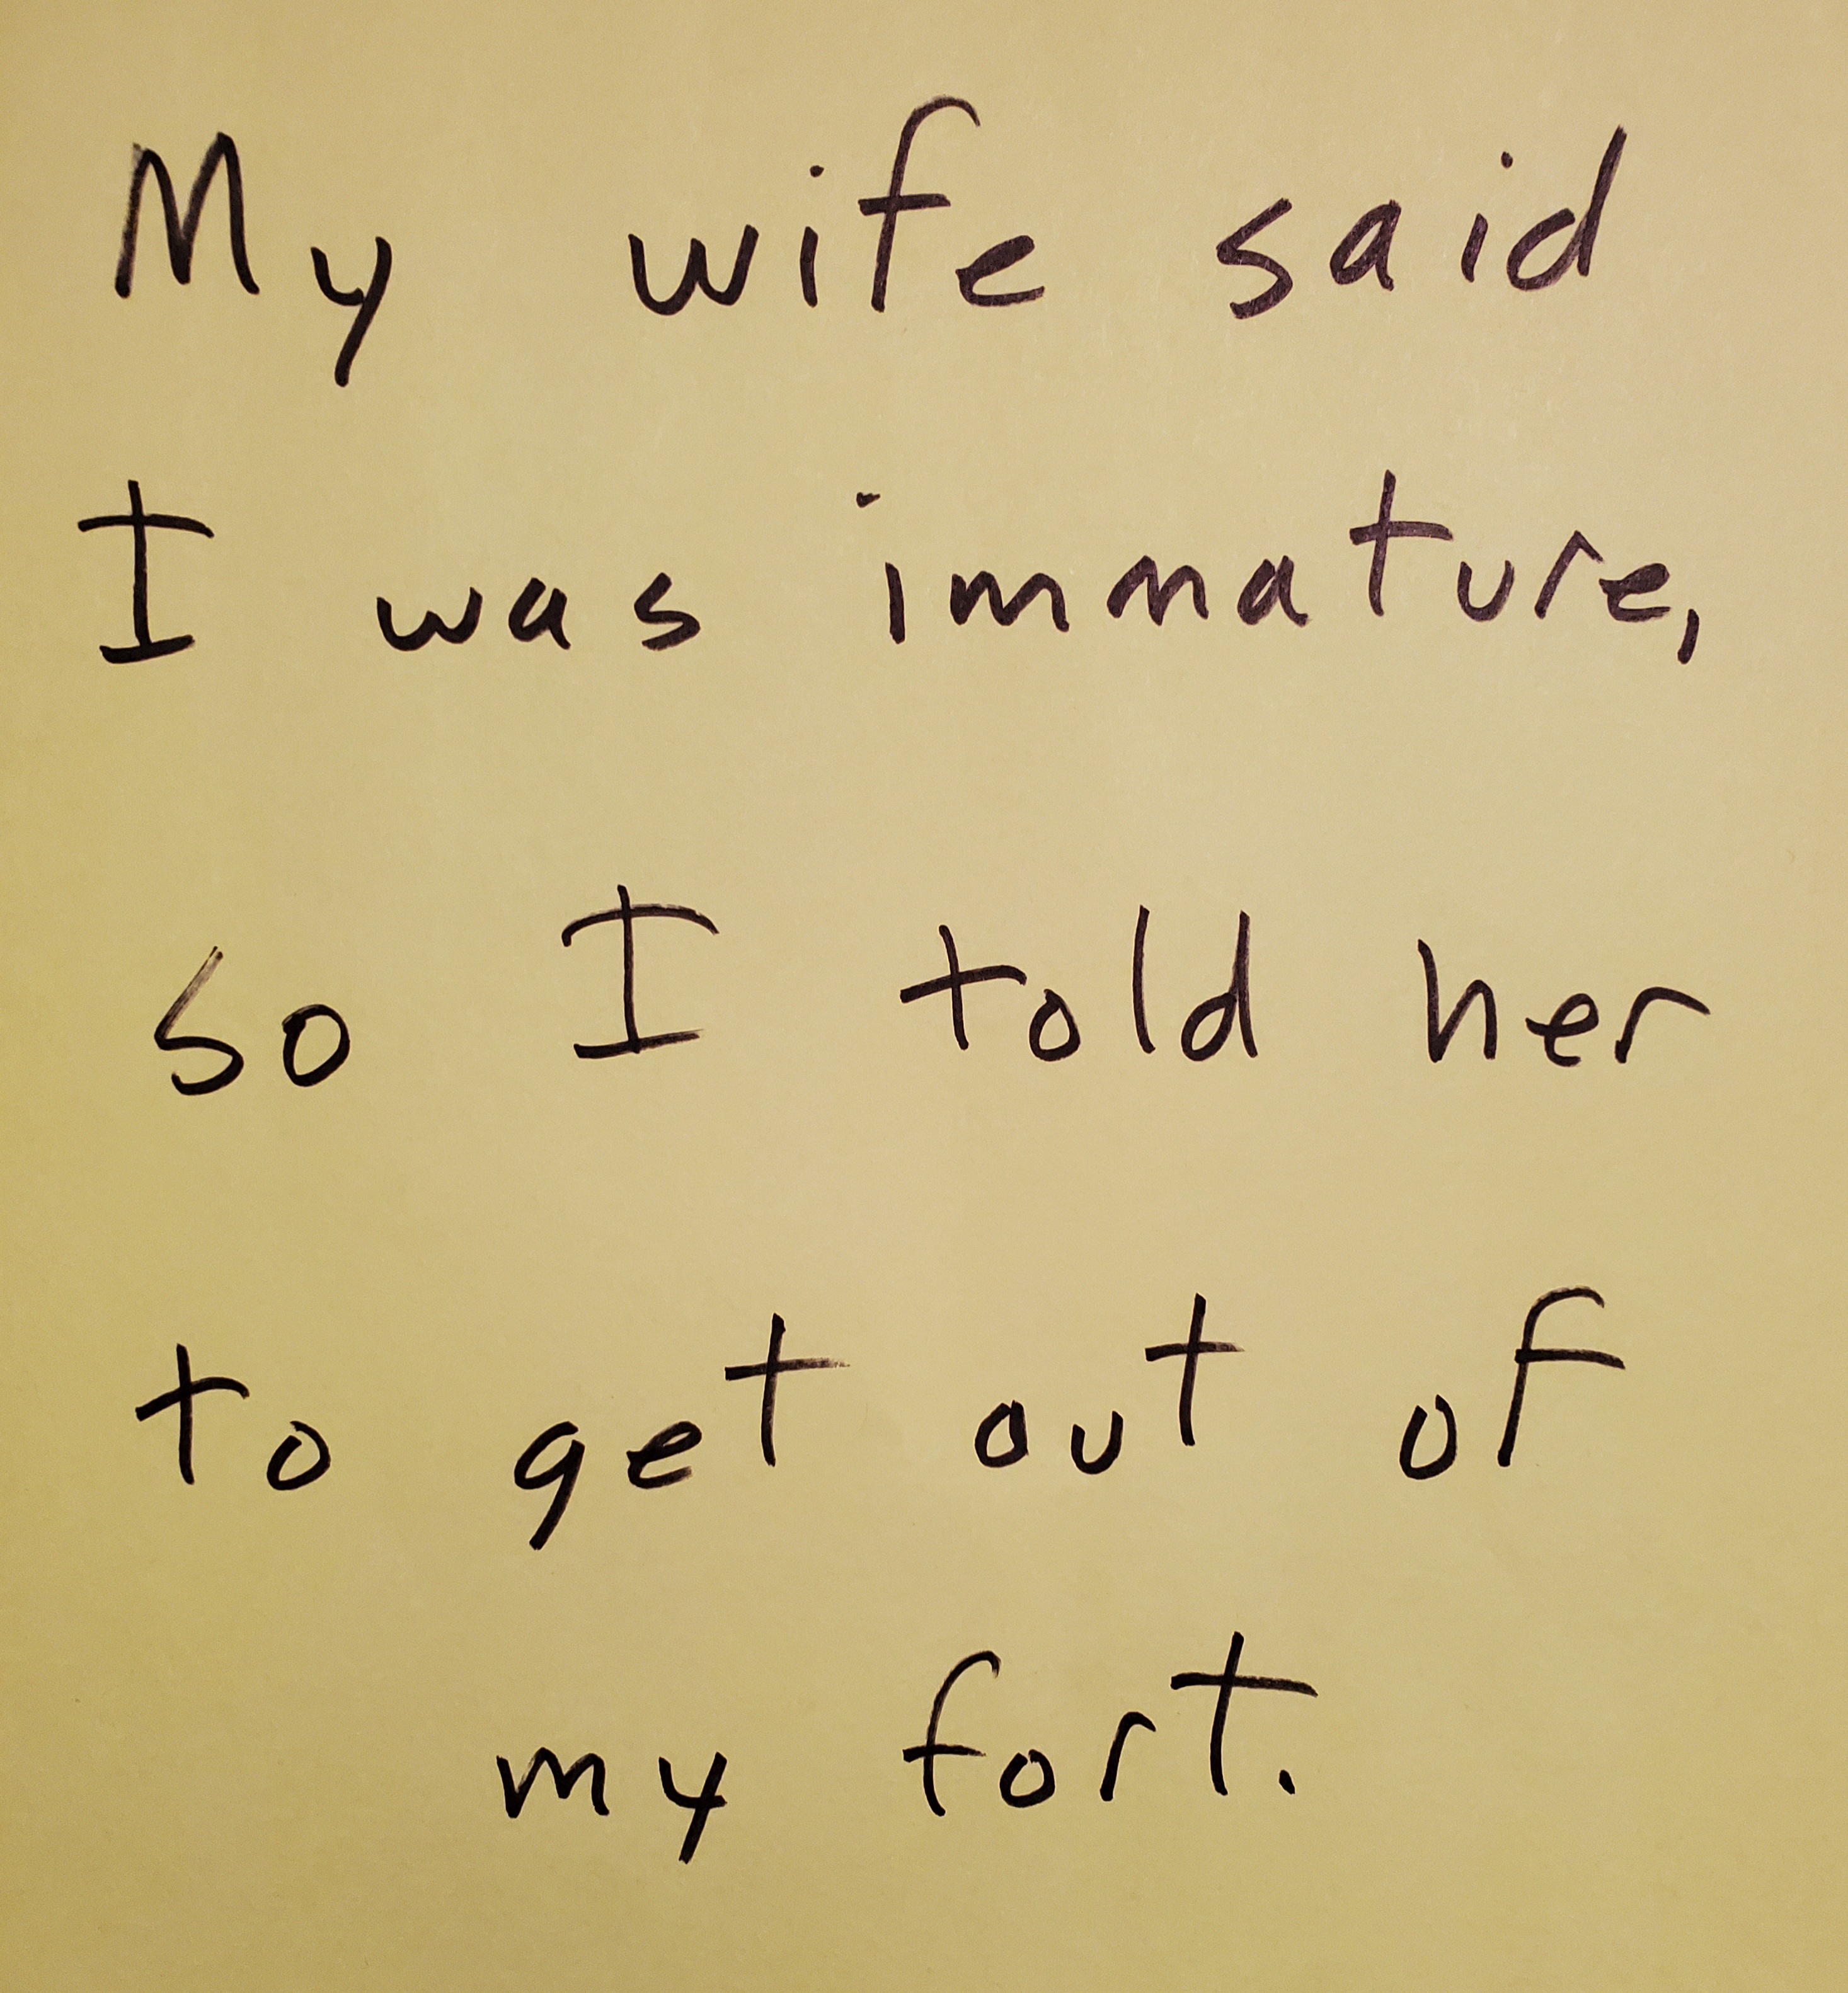 My wife said
I was immature,
so I told her
to get out of
my fort.